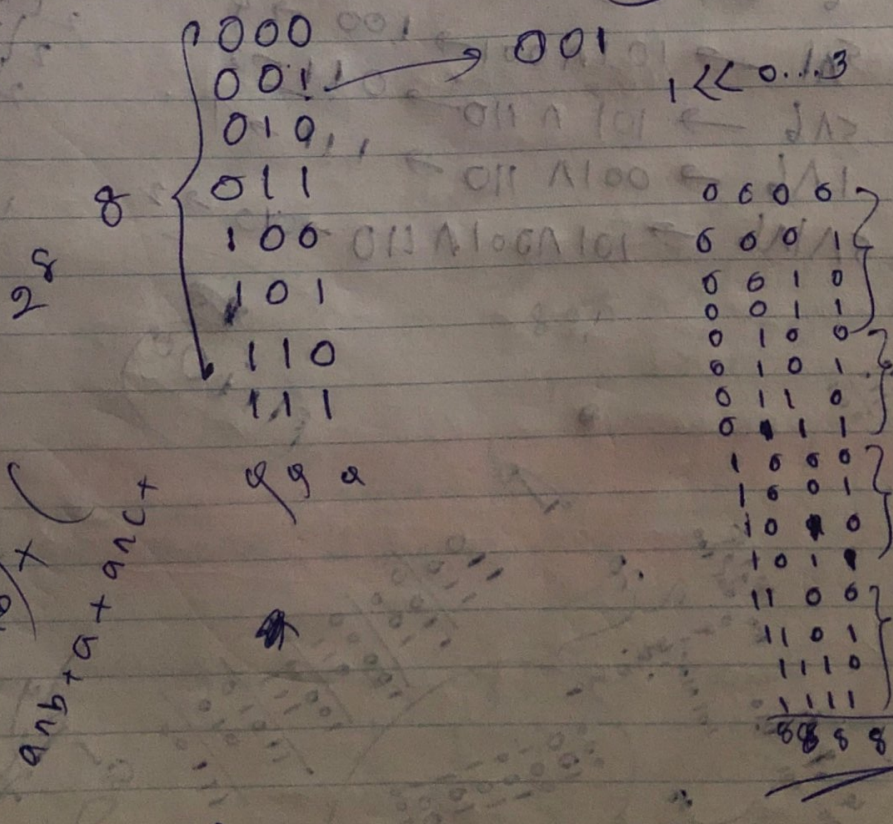 000
001 → 001
1 << 0..1.3
010
011
8
100
2^8
101
110
111
0000
0001
0010
0011
0100
0101
0110
0111
1000
1001
1010
1011
1100
1101
1110
1111
8 8 8 8
a∩b+a+a∩c+